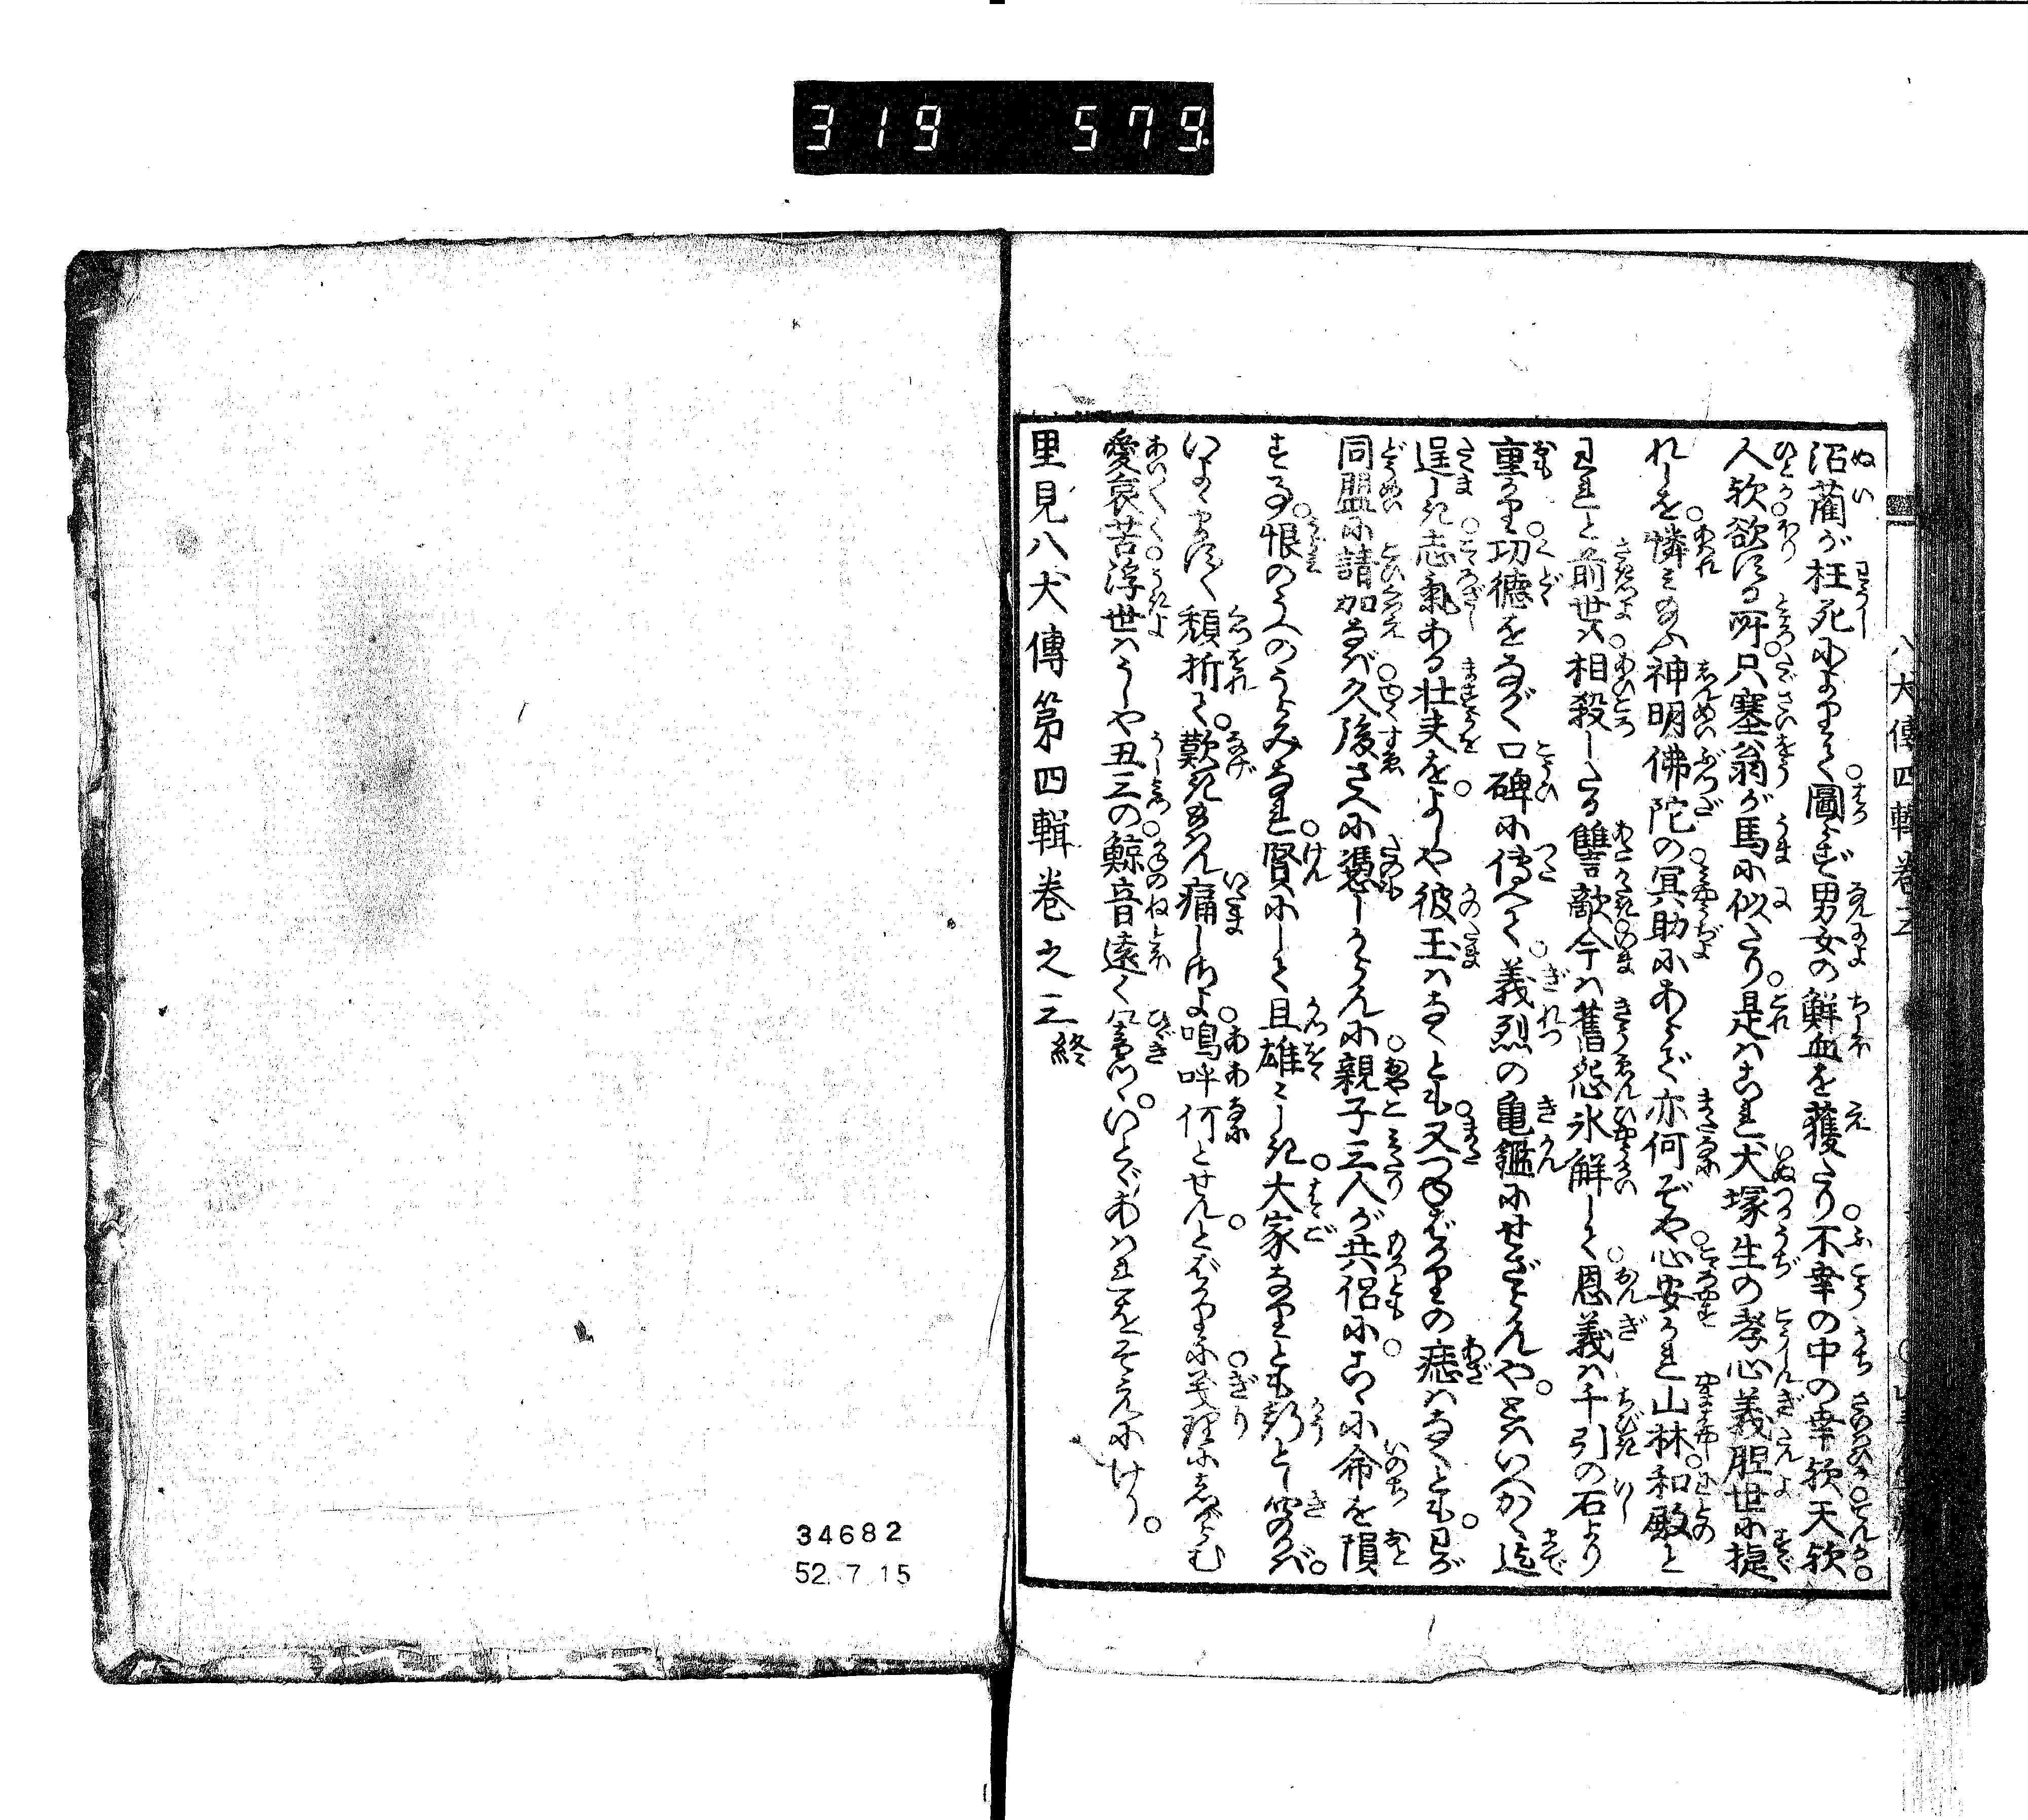 319 579
八犬傳四輯卷三
沼藺が枉死によりて圖らず男女の鮮血を獲たり不幸の中の幸欤天欤
人欤欲する所只塞翁が馬に似たり是はこれ犬塚生の孝心義胆世に捷
れしを憐み給ふ神明佛陀の冥助にあらで亦何ぞや心安かれ山林和殿と
われと前世は相殺したる讐敵今は舊怨氷解して恩義は千引の石より
重かり功徳をながく口碑に傳へて義烈の亀鑑にせざらんやとはいへかくまで
逞しき志氣ある壮夫をよしや彼玉はなくとも又つゆばかりの痣はなくともわが
同盟に請加なば久後さへに憑しからんに親子三人が共侶にこゝに命を隕
する恨のうへのうらみなれ賢にして且雄々しき大家なりとも彭とし聞かば
いよゝますます頽折て歎き給はん痛しきよ嗚呼何とせんとばかりに義理にしがらむ
愛哀苦浮世はうしや丑三の鯨音遠く響ついとゞあはれをそえにけり
里見八犬傳第四輯卷之三終
34682
52.7.15